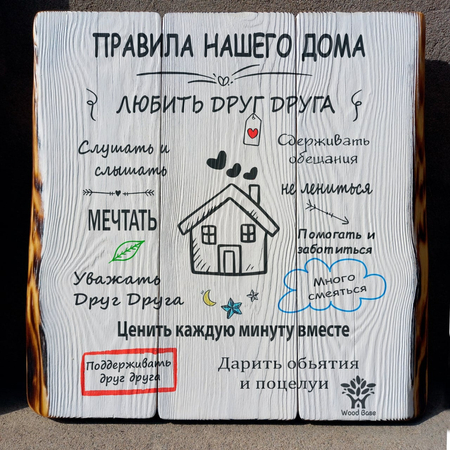 ПРАВИЛА НАШЕГО ДОМА
ЛЮБИТЬ DРУГ DРУГА
Слушать и
слышать
Сдерживать
обещания
не лениться
МЕЧТАТЬ
Помогать и
заботиться
Уважать
Друг Друга
Много
смеяться
Ценить каждую минуту вместе
Поддерживать
друг друга
Дарить обьятия
и поцелуи
Wood Base